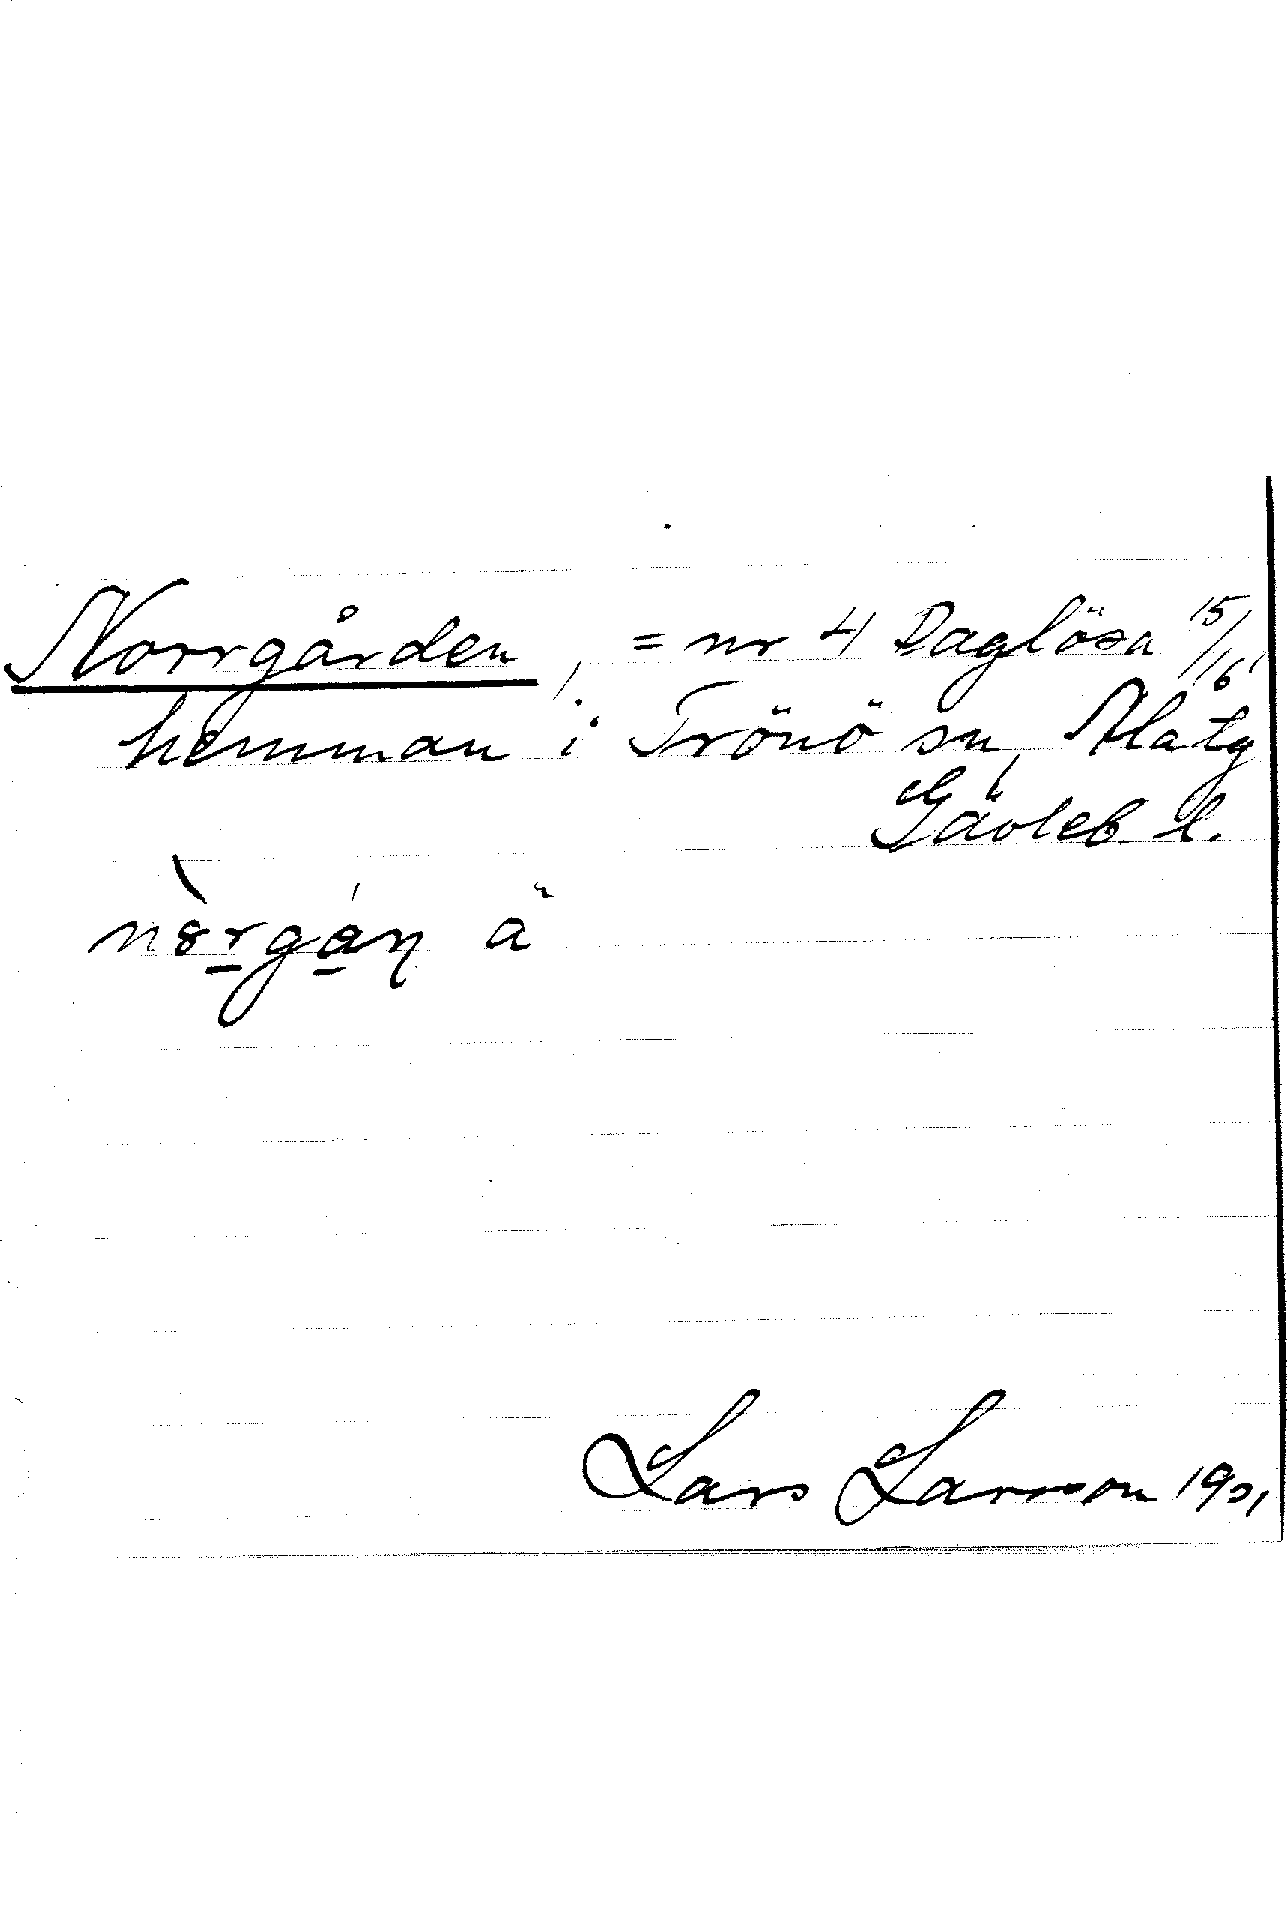 Norrgården, = nr 4 Daglösa 15/16
hemman i Trönö sn, Ala tg
Gävleb l.
nòrgán ä
Lars Larsson 1901